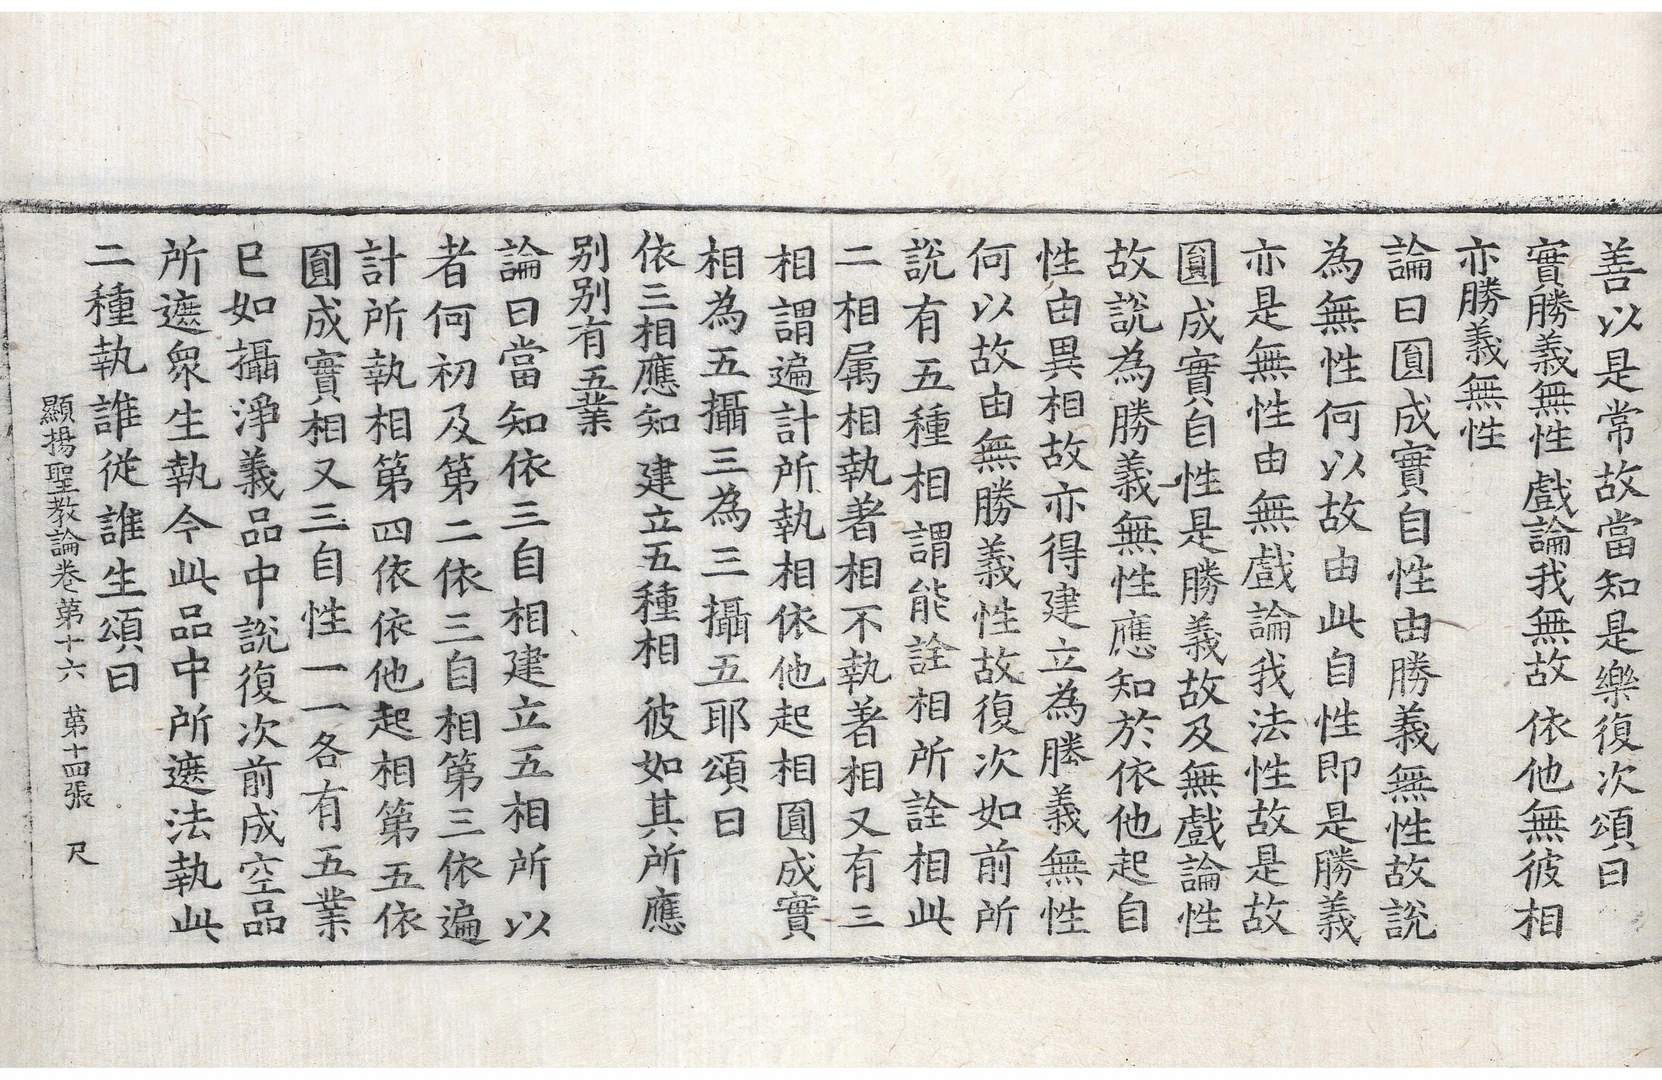 善以是常故當知是樂復次頌曰
實勝義無性 戲論我無故 依他無彼相
亦勝義無性
論曰圓成實自性由勝義無性故說
為無性何以故由此自性即是勝義
亦是無性由無戲論我法性故是故
圓成實自性是勝義故及無戲論性
故說為勝義無性應知於依他起自
性由異相故亦得建立為勝義無性
何以故由無勝義性故復次如前所
說有五種相謂能詮相所詮相此
二相属相執著相不執著相又有三
相謂遍計所執相依他起相圓成實
相為五攝三為三攝五耶頌曰
依三相應知 建立五種相 彼如其所應
别别有五業
論曰當知依三自相建立五相所以
者何初及第二依三自相第三依遍
計所執相第四依依他起相第五依
圓成實相又三自性一一各有五業
已如攝淨義品中說復次前成空品
所遮衆生執今此品中所遮法執此
二種執誰從誰生頌曰
顯揚聖教論卷第十六 第十四張 尺